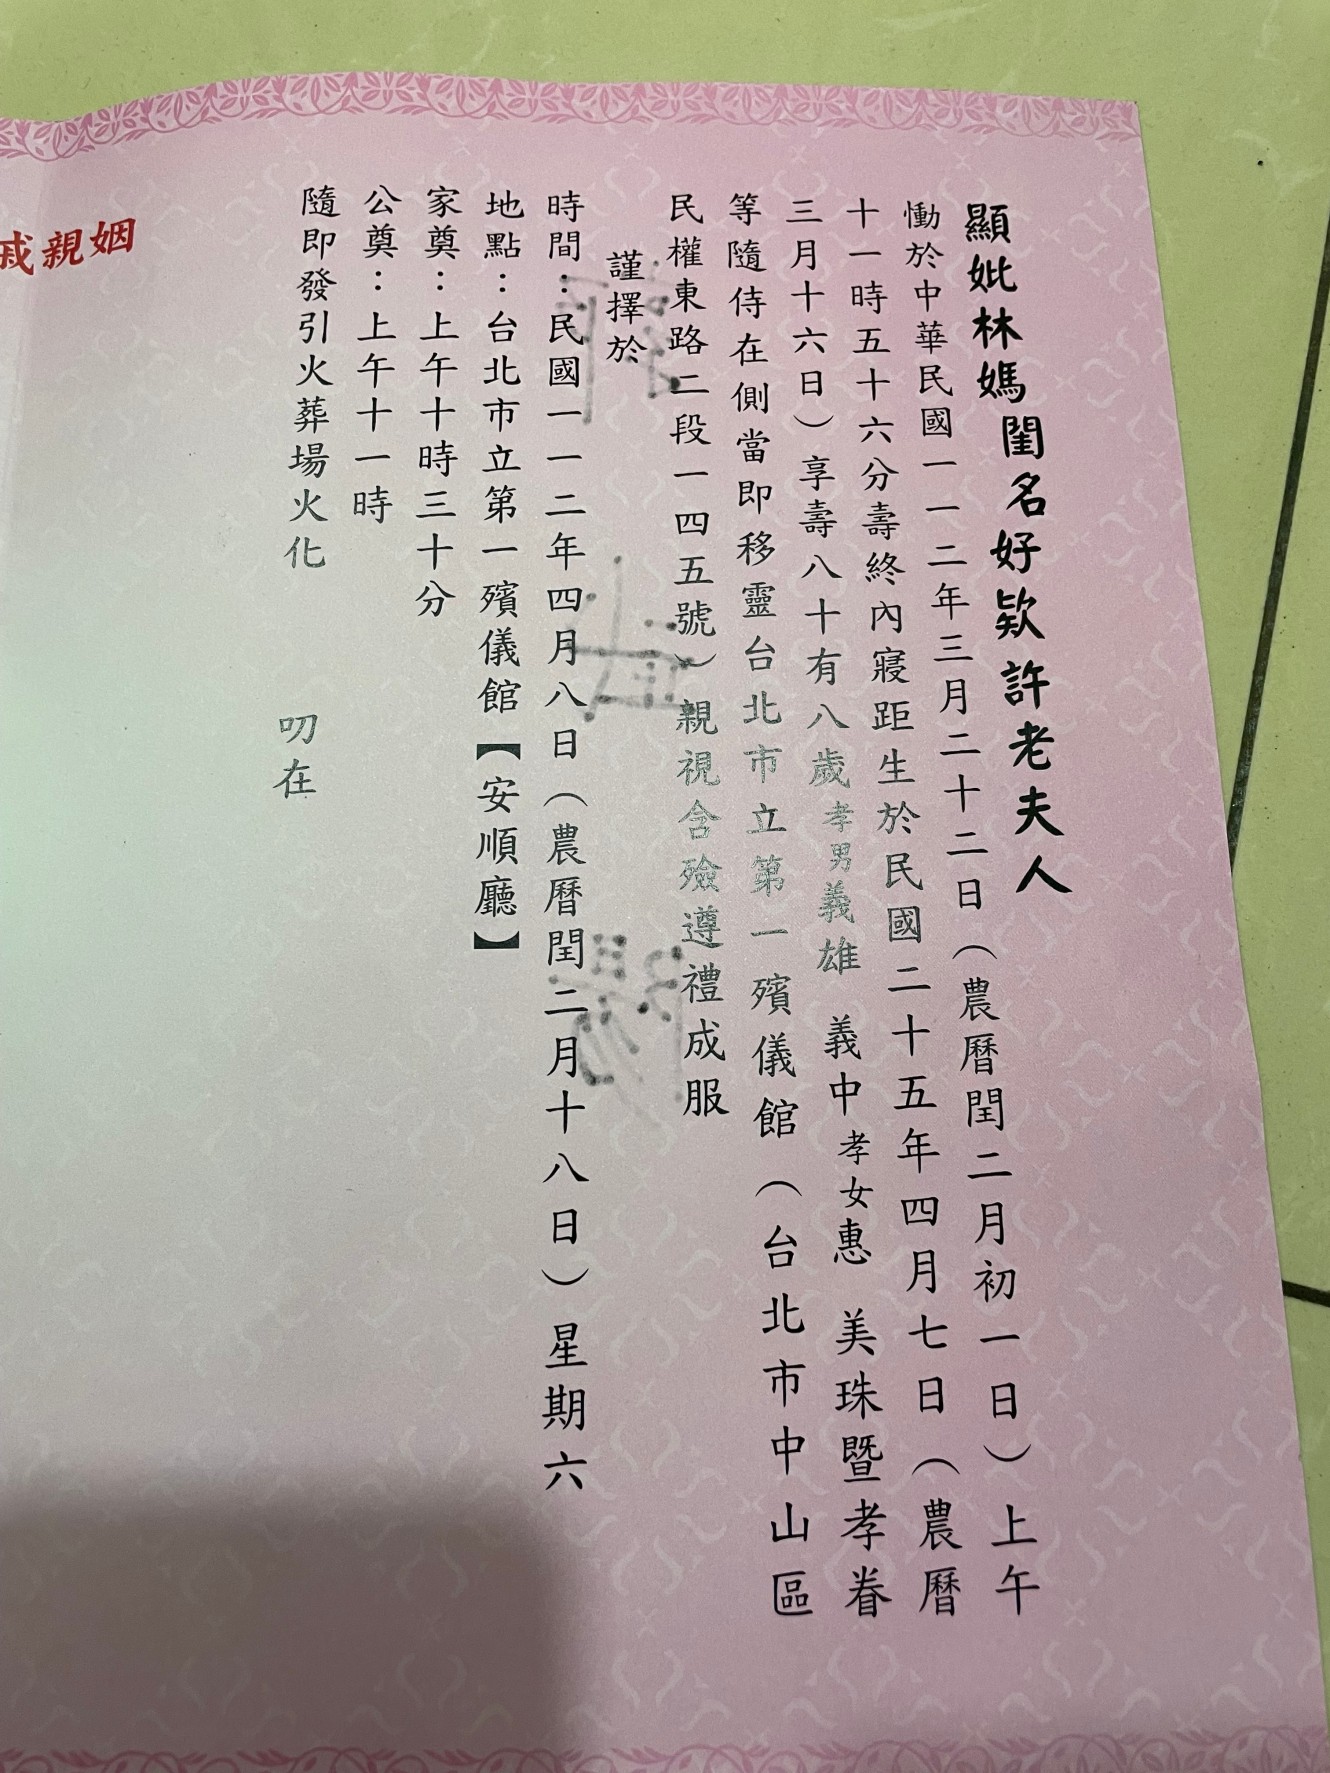 顯妣林媽閨名好欵許老夫人
慟於中華民國一一二年三月二十二日（農曆閏二月初一日）上午
十一時五十六分壽終內寢距生於民國二十五年四月七日（農曆
三月十六日）享壽八十有八歲孝男義雄 義中孝女惠 美珠暨孝眷
等隨侍在側當即移靈台北市立第一殯儀館（台北市中山區
民權東路二段一四五號）親視含殮遵禮成服
謹擇於
時間：民國一一二年四月八日（農曆閏二月十八日）星期六
地點：台北市立第一殯儀館【安順廳】
家奠：上午十時三十分
公奠：上午十一時
隨即發引火葬場火化
叨在
姻親戚